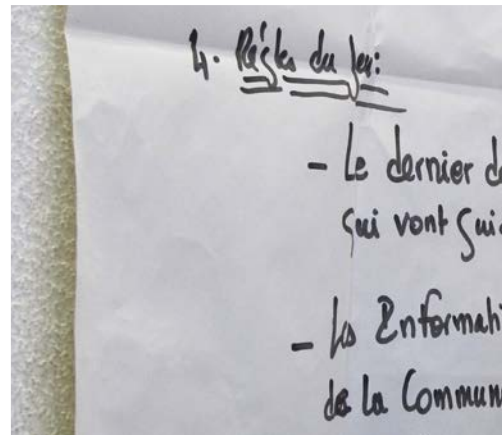 4. Règles du jeu:
- Le dernier de
qui vont sui
- Les Informati
de la Commun